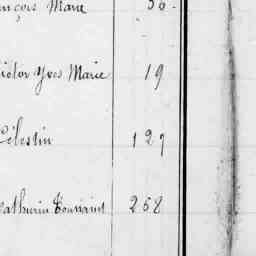 nçois Marie 36
ictor Yves Marie 19
Célestin 127
athurin Toussaint 258